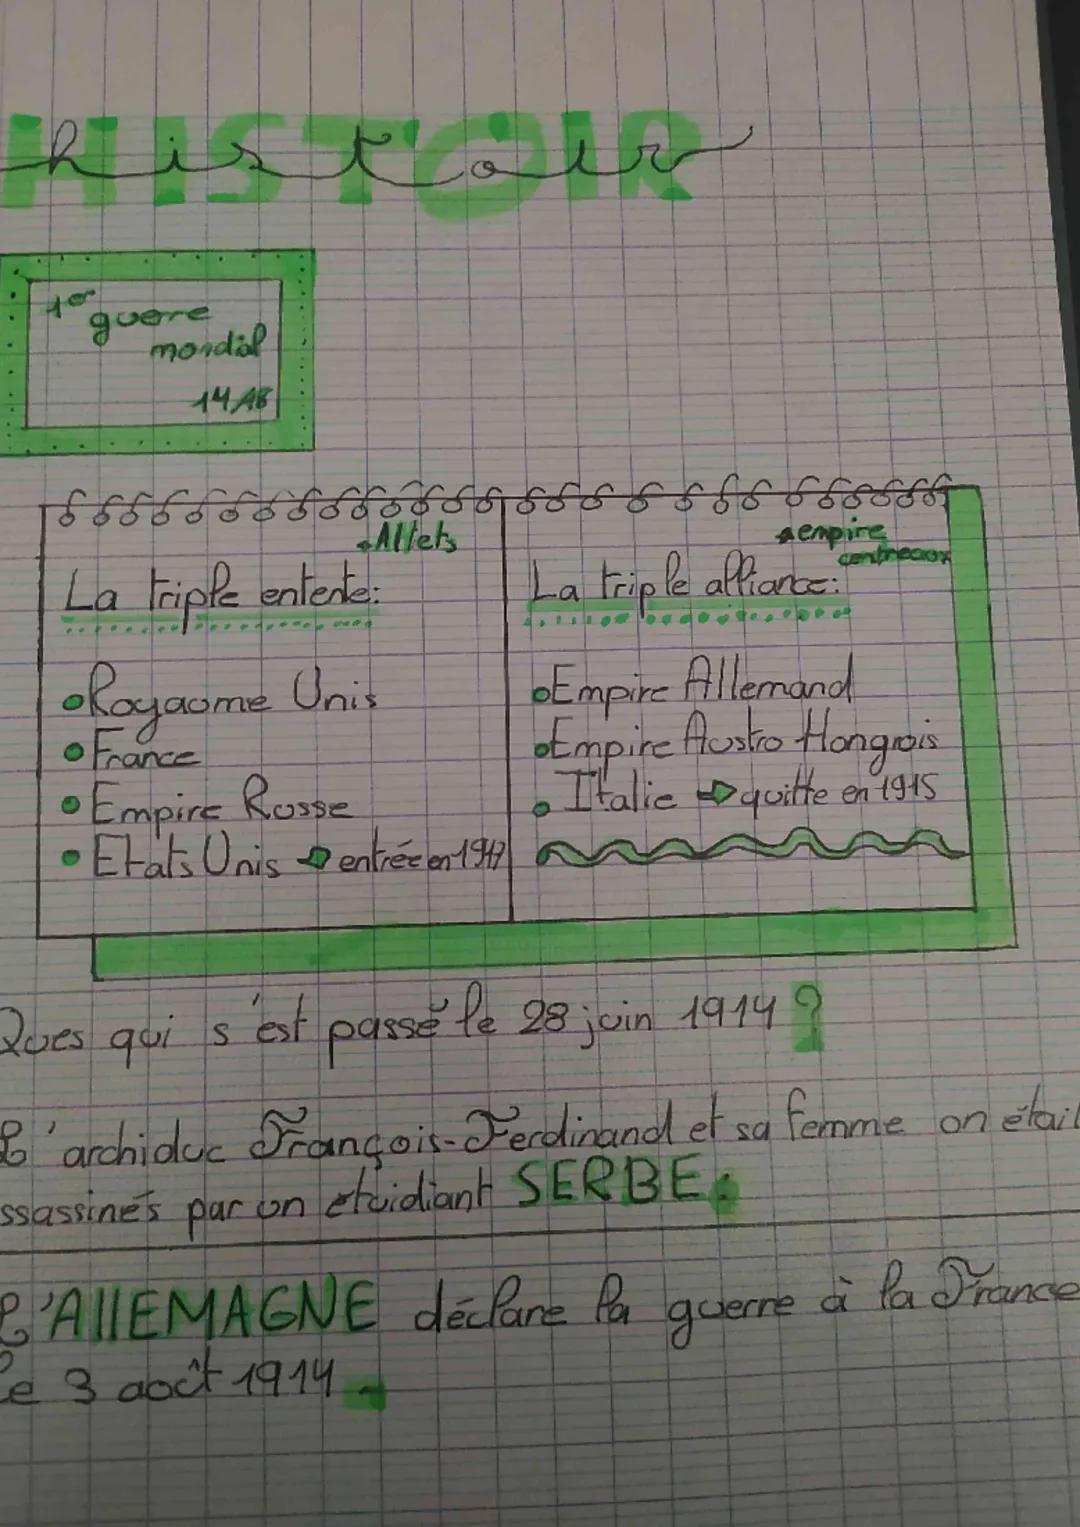 HISTOIR
histoir
1er
guerre
mondial
14/18
Alliés
La triple entente:
Royaume Unis
France
Empire Russe
Etats Unis ⇨ entrée en 1917
empire
centreaux
La triple alliance:
Empire Allemand
Empire Austro Hongrois
Italie ⇨ quitte en 1915
Ques qui s'est passé le 28 juin 1914 ?
L'archiduc François-Ferdinand et sa femme on était
ssassinés par un etuidiant SERBE.
L'AllEMAGNE déclare la guerre à la France
le 3 août 1914.